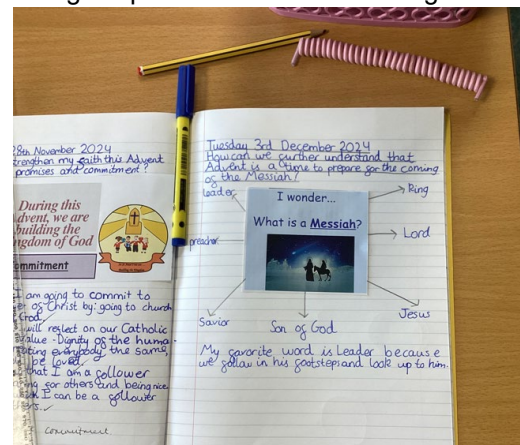 28th November 2024
strengthen my faith this Advent
promises and commitment?
During this
Advent, we are
building the
Kingdom of God
Commitment
I am going to commit to
of Christ by: going to church
God.
will reflect on our Catholic
value - Dignity of the human
everybody the same,
be loved.
that I am a follower
for others and being nice
I can be a follower
Commitment
Tuesday 3rd December 2024
How can we further understand that
Advent is a time to prepare for the coming
of the Messiah?
leader
King
I wonder...
What is a Messiah?
preacher
Lord
Savior
Son of God
Jesus
My favorite word is Leader because
we follow in his footsteps and look up to him.